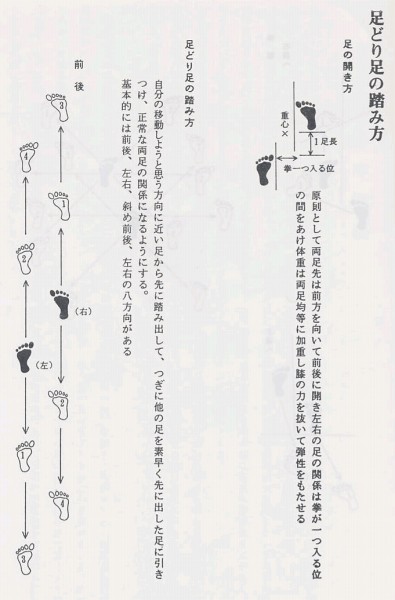 足どり足の踏み方
足の開き方
1足長
重心×
拳一つ入る位
原則として両足先は前方を向いて前後に開き左右の足の関係は拳が一つ入る位
の間をあけ体重は両足均等に加重し膝の力を抜いて弾性をもたせる
足どり足の踏み方
自分の移動しようと思う方向に近い足から先に踏み出して、つぎに他の足を素早く先に出した足に引き
つけ、正常な両足の関係になるようにする。
基本的には前後、左右、斜め前後、左右の八方向がある
前後
3
1
(右)
2
4
4
2
(左)
1
3